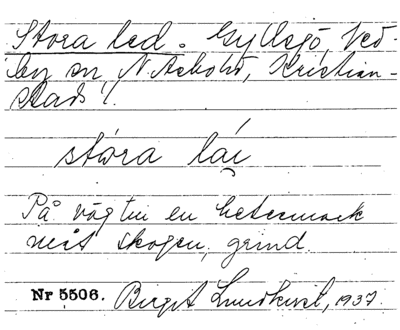 Stora led. Gyllsjö, Ved-
by sn, N. Åsbobd, Kristian-
stads l.
stóra láị
På väg till en betesmark
mot skogen, grind.
Nr 5506. Birgit Lundkvist, 1937.